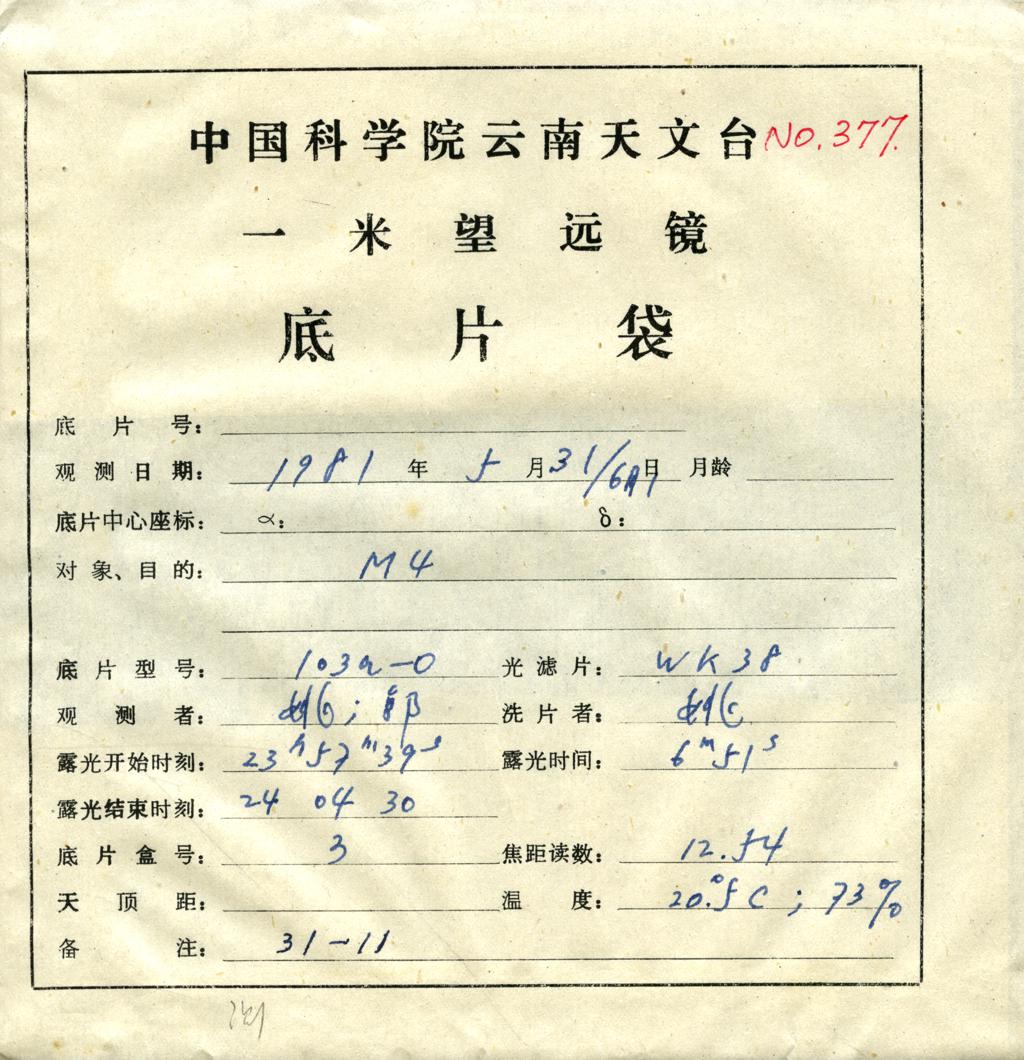 中国科学院云南天文台 NO.377.
一米望远镜
底片袋
底片号:
观测日期: 1981年 5月31/6月1日 月龄
底片中心座标: α: δ:
对象、目的: M4
底片型号: 103a-O 光滤片: WK38
观测者: 洗片者:
露光开始时刻: 23h57m39s 露光时间: 6m51s
露光结束时刻: 24 04 30
底片盒号: 3 焦距读数: 12.54
天顶距: 温度: 20.°5C; 73%
备注: 31-11